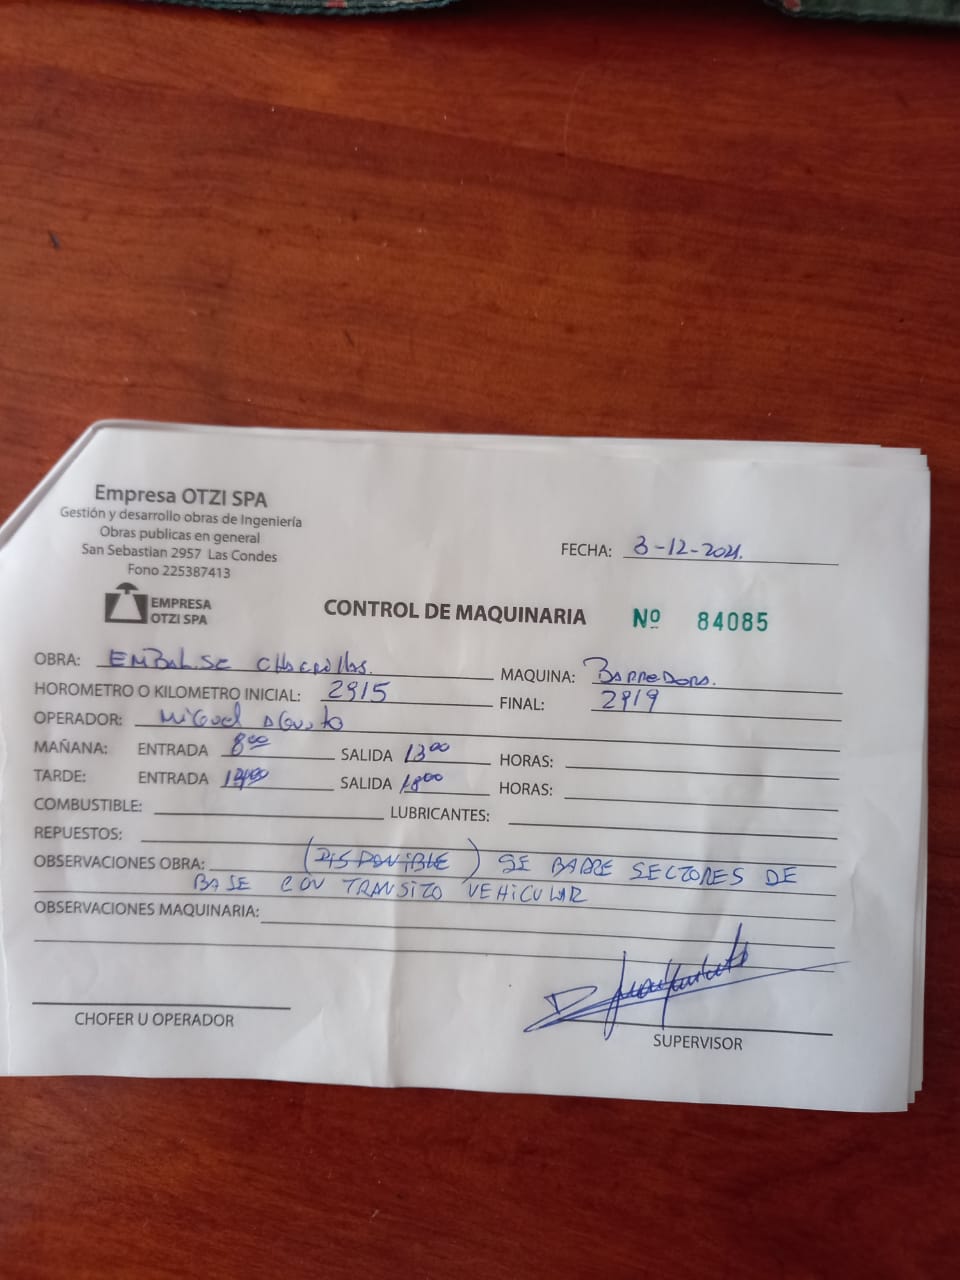 Empresa OTZI SPA
Gestión y desarrollo obras de Ingeniería
Obras publicas en general
San Sebastian 2957 Las Condes
Fono 225387413
EMPRESA
OTZI SPA
FECHA: 3-12-2021.
CONTROL DE MAQUINARIA Nº 84085
OBRA: EMBALSE CHACRILLAS. MAQUINA: BARREDORA.
HOROMETRO O KILOMETRO INICIAL: 2915 FINAL: 2919
OPERADOR: MIGUEL
MAÑANA: ENTRADA 8:00 SALIDA 13:00 HORAS:
TARDE: ENTRADA SALIDA 18:00 HORAS:
COMBUSTIBLE: LUBRICANTES:
REPUESTOS:
OBSERVACIONES OBRA: (DISPONIBLE) SE BARRE SECTORES DE
BASE CON TRANSITO VEHICULAR
OBSERVACIONES MAQUINARIA:
CHOFER U OPERADOR
SUPERVISOR